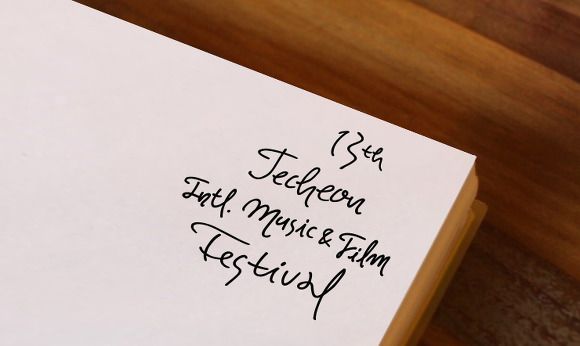 13th
Jecheon
Intl. Music & Film
Festival